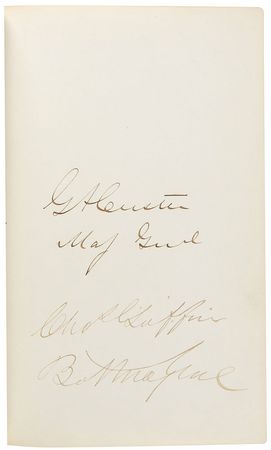 G A Custer
Maj Genl
Chas Griffin
Bvt Maj Genl